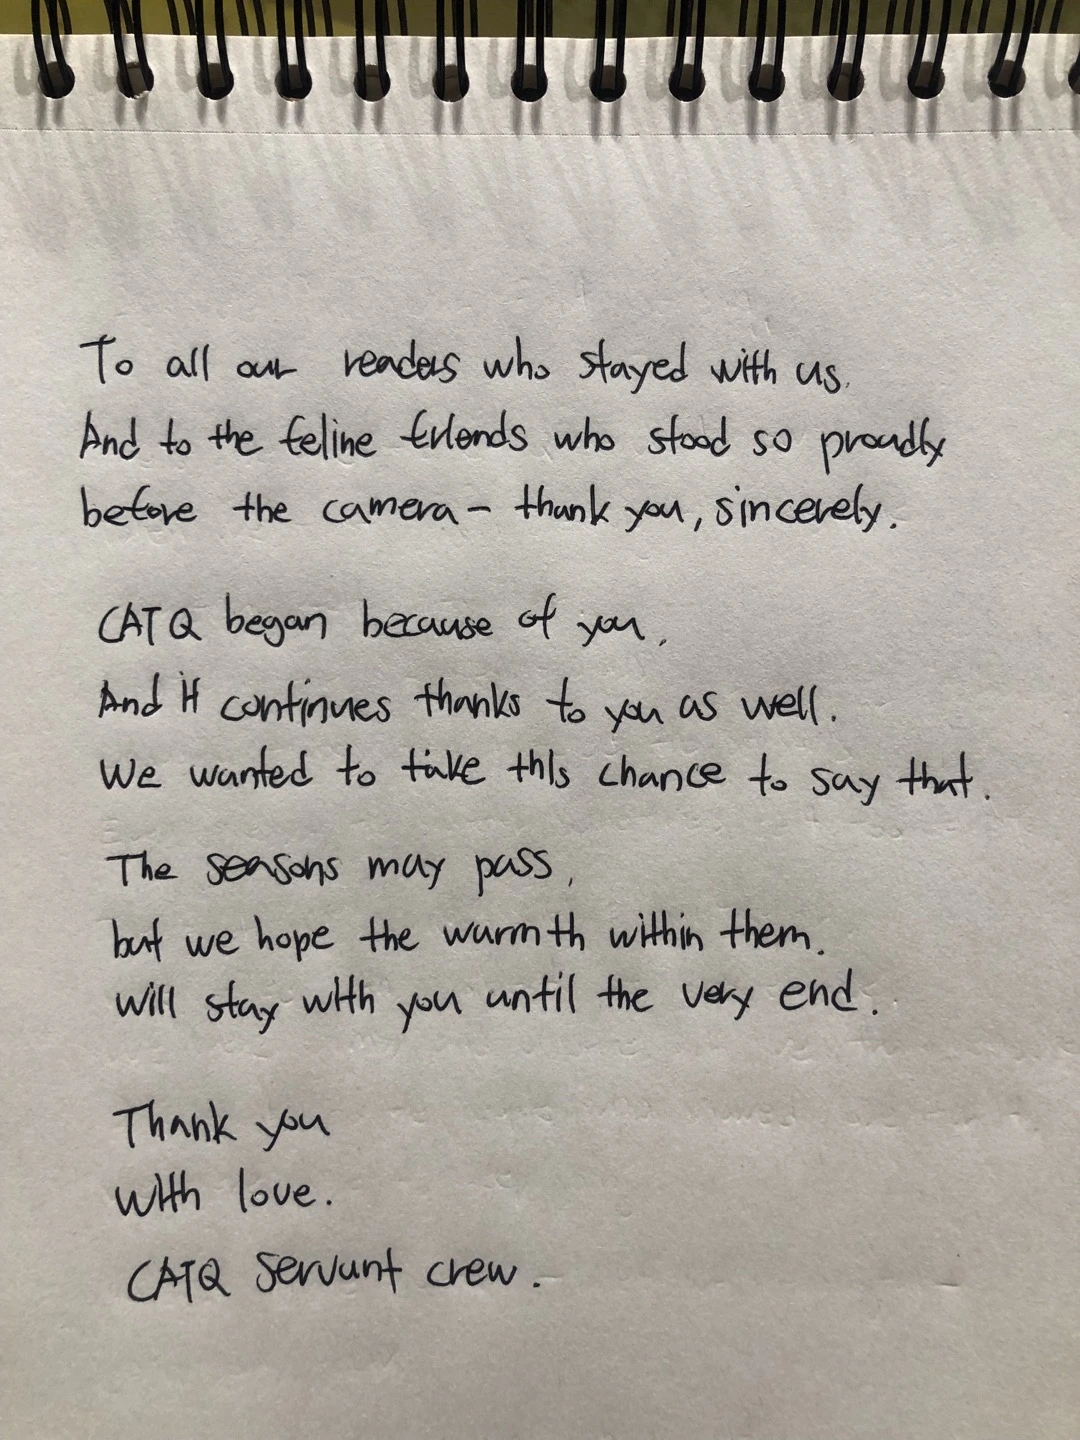 To all our readers who stayed with us.
And to the feline friends who stood so proudly
before the camera - thank you, sincerely.
CATQ began because of you,
And it continues thanks to you as well.
We wanted to take this chance to say that.
The seasons may pass,
but we hope the warmth within them.
will stay with you until the very end.
Thank you
with love.
CATQ servant crew.